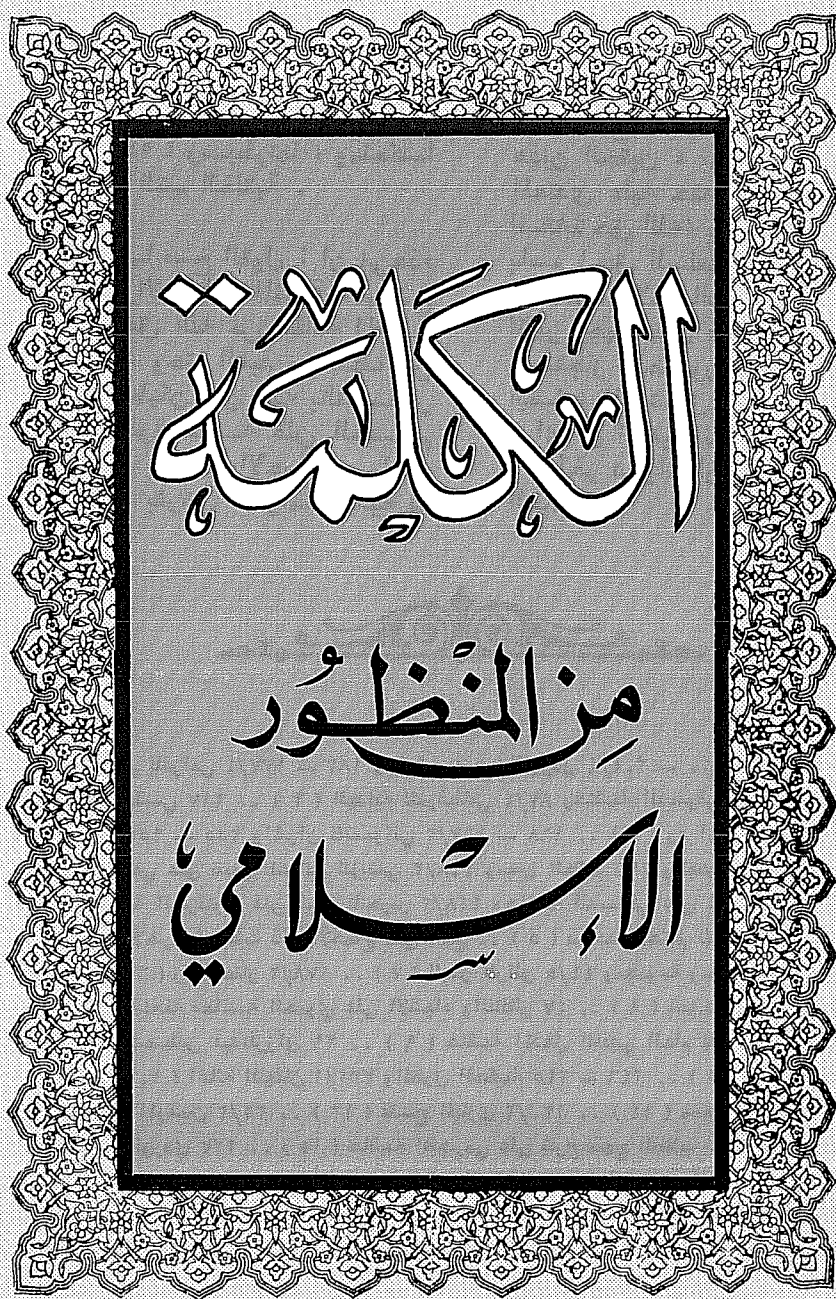 الكَلِمَة
مِن المنْظُور
الإسلامي